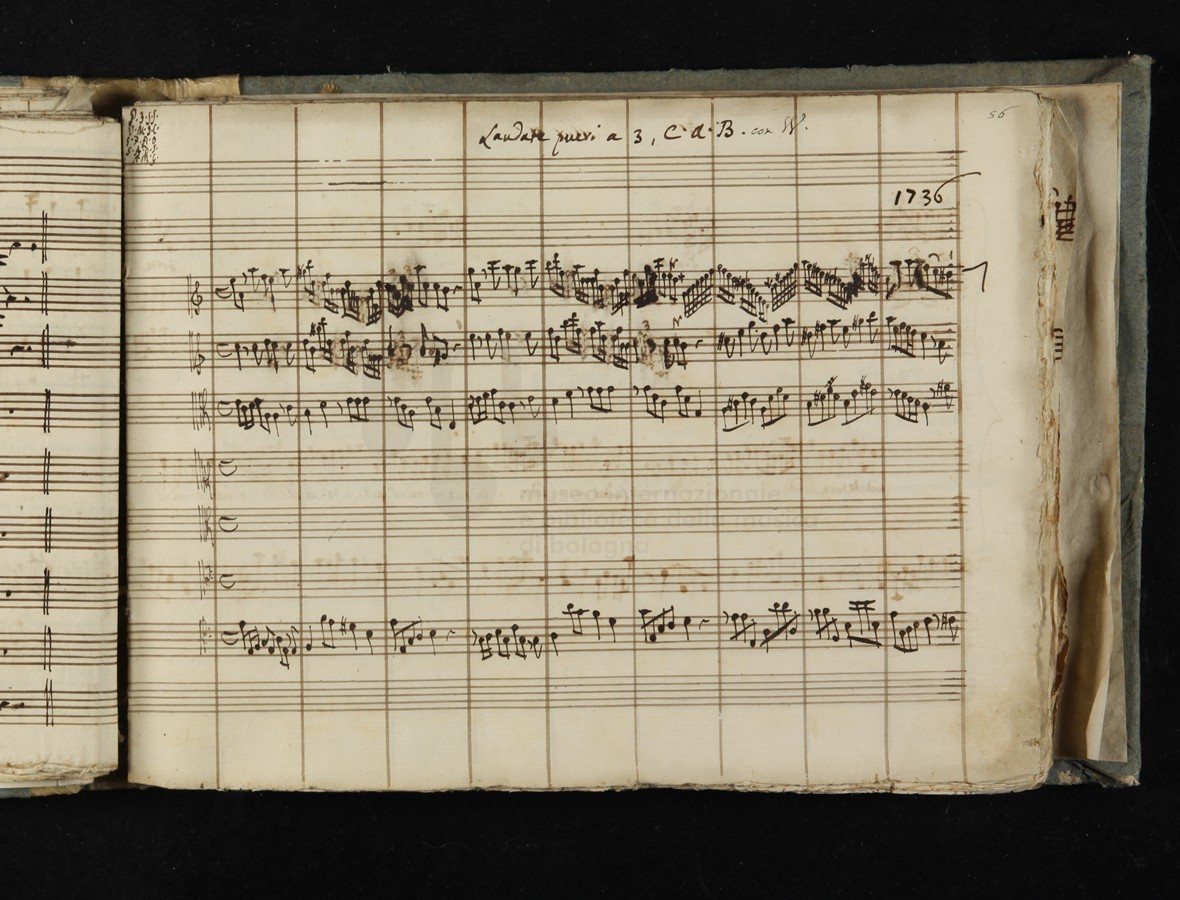 56
Laudate pueri a 3, C. A. B. con VV.
1736
museo internazionale
e biblioteca della musica
di bologna